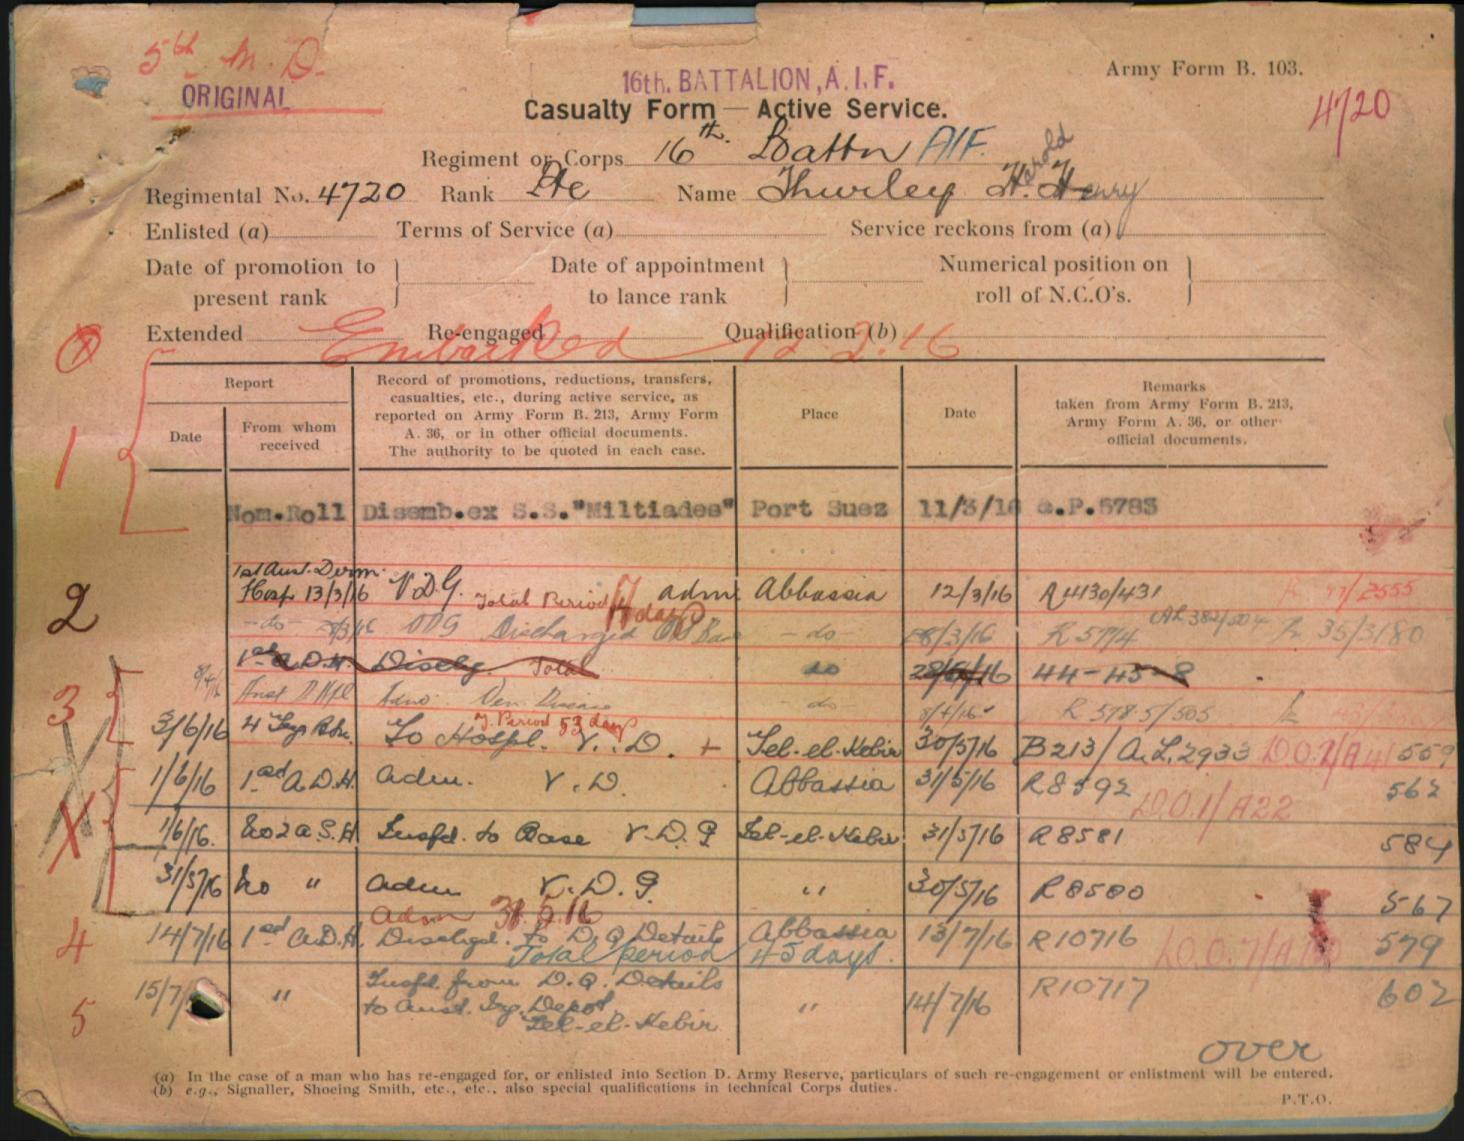 5th M. D.
ORIGINAL
16th. BATTALION, A.I.F.
Army Form B. 103.
Casualty Form — Active Service.
4720
Regiment or Corps 16th. Battn AIF.
Harold
Regimental No. 4720 Rank Pte Name Thurley H. Henry
Enlisted (a) Terms of Service (a) Service reckons from (a)
Date of promotion to present rank } Date of appointment to lance rank } Numerical position on roll of N.C.O's. }
Extended Re-engaged Qualification (b)
Embarked 12.2.16
Report
Date
From whom received
Record of promotions, reductions, transfers,
casualties, etc., during active service, as
reported on Army Form B. 213, Army Form
A. 36, or in other official documents.
The authority to be quoted in each case.
Place
Date
Remarks
taken from Army Form B. 213,
Army Form A. 36, or other
official documents.
1
Nom.Roll Disemb.ex S.S."Miltiades" Port Suez 11/3/16 a.P.6783
2
1st Aust. Derm.
Hosp 13/3/16 V.D.G. adm Abbassia 12/3/16 R4430/431
Total Period 17 days
-do- Discharged -do- /3/16 35/3180
1st A.D.H. Dischg. Total do 28/ /16 44-45-8
8/4/16 Adm. Ven. Disease -do- 8/4/16 R 5785/505
3
T. Period 53 days
3/6/16 4 Trg Btn. To Hospl. V.D. + Tel-el-Kebir 30/5/16 B213/A.L.2933 559
1/6/16 1st A.D.H. adm. V.D. Abbassia 31/5/16 R8592 D.O.1/A22 562
X
1/6/16. No 2 A.S.H. Tnsfd. to Base V.D.G Tel-el-Kebir 31/5/16 R8581 584
31/5/16 No " adm V.D.G. " 30/5/16 R8580 567
Adm 31.5.16
4
14/7/16 1st A.D.H. Dischgd. to B.Q Details Abbassia 13/7/16 R10716 579
Total period 45 days.
5
15/7/ " Tnsfd. from B.Q. Details " 14/7/16 R10717 602
to Aust. Trg. Depot,
Tel-el-Kebir
over
(a) In the case of a man who has re-engaged for, or enlisted into Section D. Army Reserve, particulars of such re-engagement or enlistment will be entered.
(b) e.g., Signaller, Shoeing Smith, etc., etc., also special qualifications in technical Corps duties.
P.T.O.